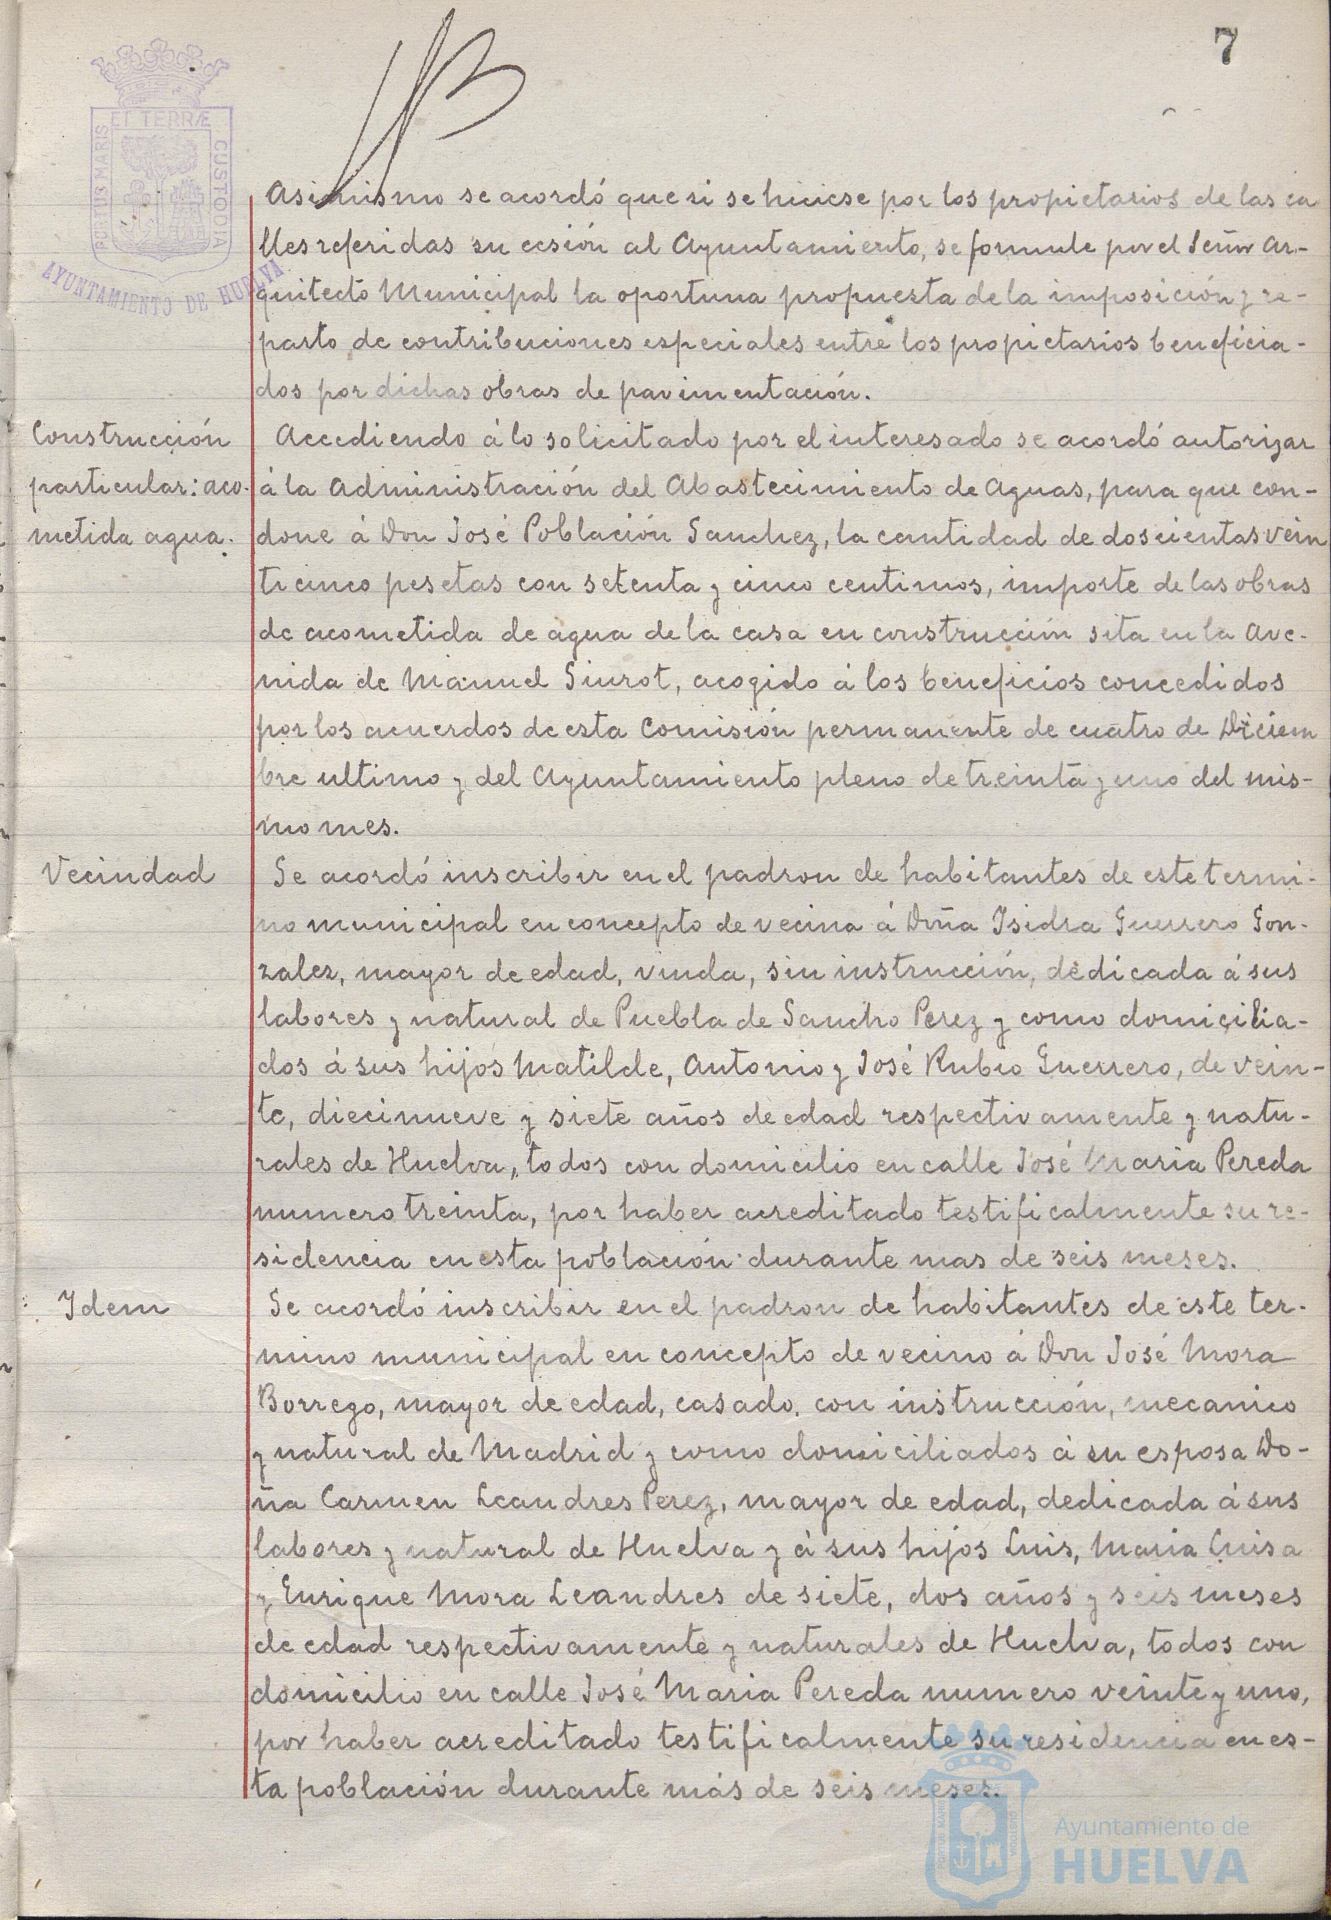 7
PORTUS MARIS ET TERRÆ CUSTODIA
AYUNTAMIENTO DE HUELVA
Asimismo se acordó que si se hiciese por los propietarios de las ca
lles referidas su cesión al Ayuntamiento, se formule por el Señor Ar-
quitecto Municipal la oportuna propuesta de la imposición y re-
parto de contribuciones especiales entre los propietarios beneficia-
dos por dichas obras de pavimentación.
Construcción
particular: aco-
metida agua.
Accediendo á lo solicitado por el interesado se acordó autorizar
á la Administración del Abastecimiento de Aguas, para que con-
done á Don José Población Sanchez, la cantidad de doscientas vein
ticinco pesetas con setenta y cinco centimos, importe de las obras
de acometida de agua de la casa en construcción sita en la Ave-
nida de Manuel Siurot, acogido á los beneficios concedidos
por los acuerdos de esta Comisión permanente de cuatro de Diciem
bre ultimo y del Ayuntamiento pleno de treinta y uno del mis-
mo mes.
Vecindad
Se acordó inscribir en el padron de habitantes de este termi-
no municipal en concepto de vecina á Doña Isidra Guerrero Gon-
zalez, mayor de edad, viuda, sin instrucción, dedicada á sus
labores y natural de Puebla de Sancho Perez y como domicilia-
dos á sus hijos Matilde, Antonio y José Rubio Guerrero, de vein-
te, diecinueve y siete años de edad respectivamente y natu-
rales de Huelva, todos con domicilio en calle José Maria Pereda
numero treinta, por haber acreditado testificalmente su re-
sidencia en esta población durante mas de seis meses.
Idem
Se acordó inscribir en el padron de habitantes de este ter-
mino municipal en concepto de vecino á Don José Mora
Borrego, mayor de edad, casado, con instrucción, mecanico
y natural de Madrid y como domiciliados á su esposa Do-
ña Carmen Leandres Perez, mayor de edad, dedicada á sus
labores y natural de Huelva y á sus hijos Luis, Maria Luisa
y Enrique Mora Leandres de siete, dos años y seis meses
de edad respectivamente y naturales de Huelva, todos con
domicilio en calle José Maria Pereda numero veinte y uno,
por haber acreditado testificalmente su residencia en es-
ta población durante más de seis meses.
Ayuntamiento de
HUELVA